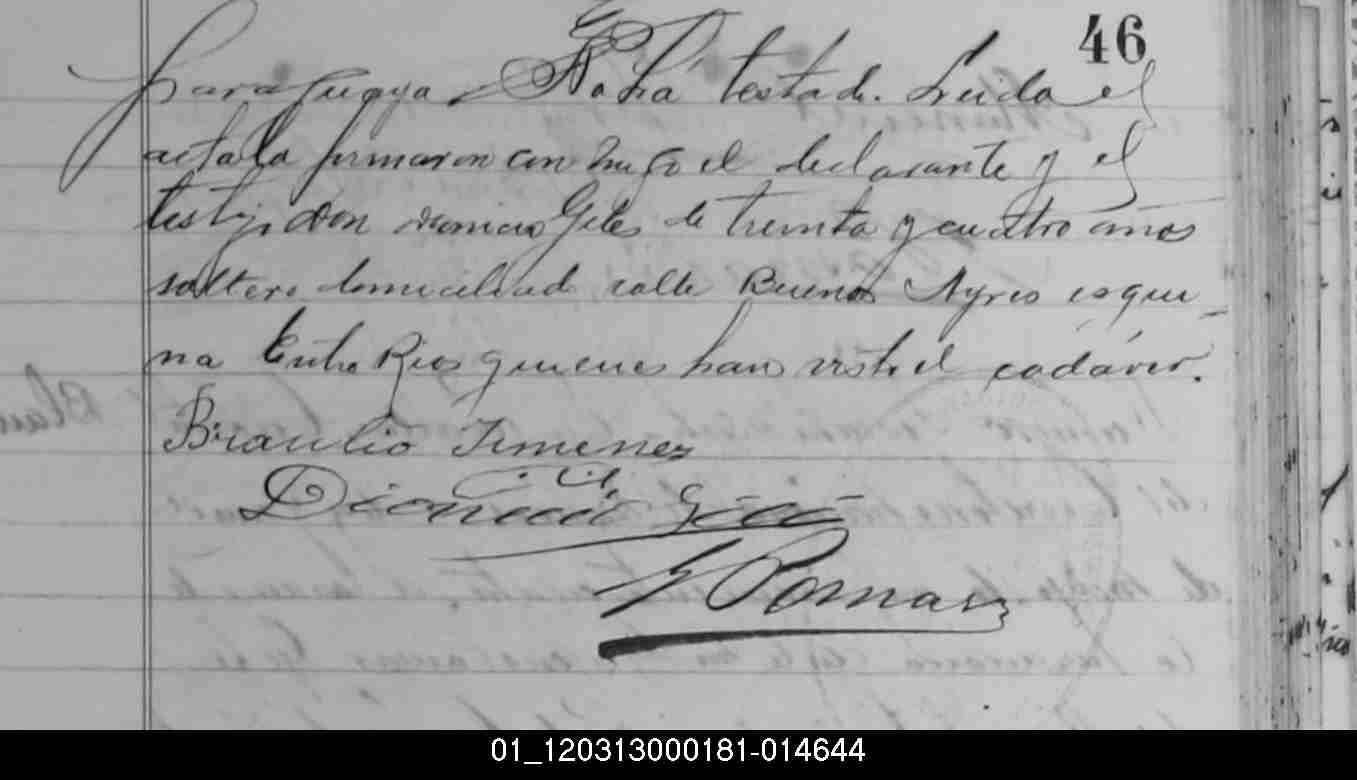 46
paraguaya No ha testado. Leida el
acta la firmaron conmigo el declarante y el
testigo don Dionicio Giles de treinta y cuatro años
soltero domiciliado calle Buenos Ayres esqui-
na Entre Rios quienes han visto el cadáver.
Braulio Jimenez
Dionicio
Pomar
01_120313000181-014644